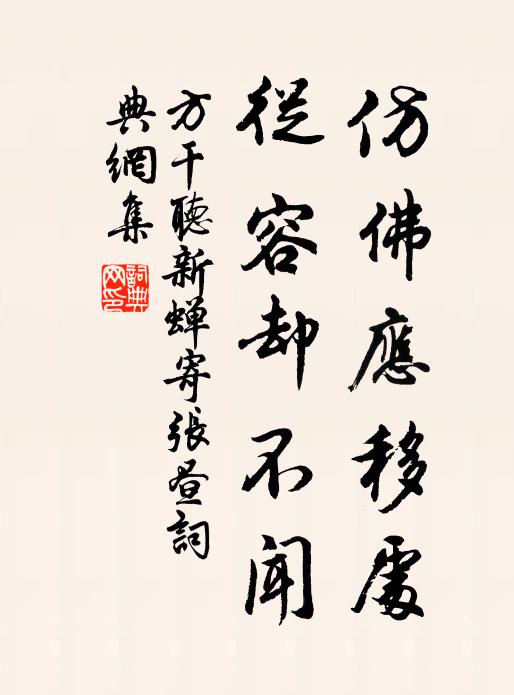 仿佛應移處
從容却不聞
方干聽新蝉寄張昼詞
典網集
詞典網印